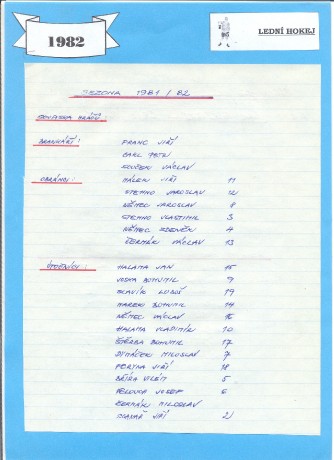 1982
LEDNÍ HOKEJ
SEZONA 1981/82
SOUPISKA HRÁČŮ:
BRANKÁŘI: FRANC JIŘÍ
CARL PETR
SOUČEK VÁCLAV
OBRÁNCI: MÁLEK JIŘÍ 11
STEHNO JAROSLAV 12
NĚMEC JAROSLAV 8
STEHNO VLASTIMIL 3
NĚMEC ZDENĚK 4
ČERMÁK VÁCLAV 13
ÚTOČNÍCI: HALAMA JAN 15
BOHUMIL 9
SLAVÍK LUBOŠ 19
MAREK BOHUMIL 14
NĚMEC VÁCLAV 16
HALAMA VLADIMÍR 10
ŠTĚRBA BOHUMIL 17
MILOSLAV 7
JIŘÍ 18
VILÉM 5
JOSEF 6
ČERMÁK MILOSLAV
JIŘÍ 2